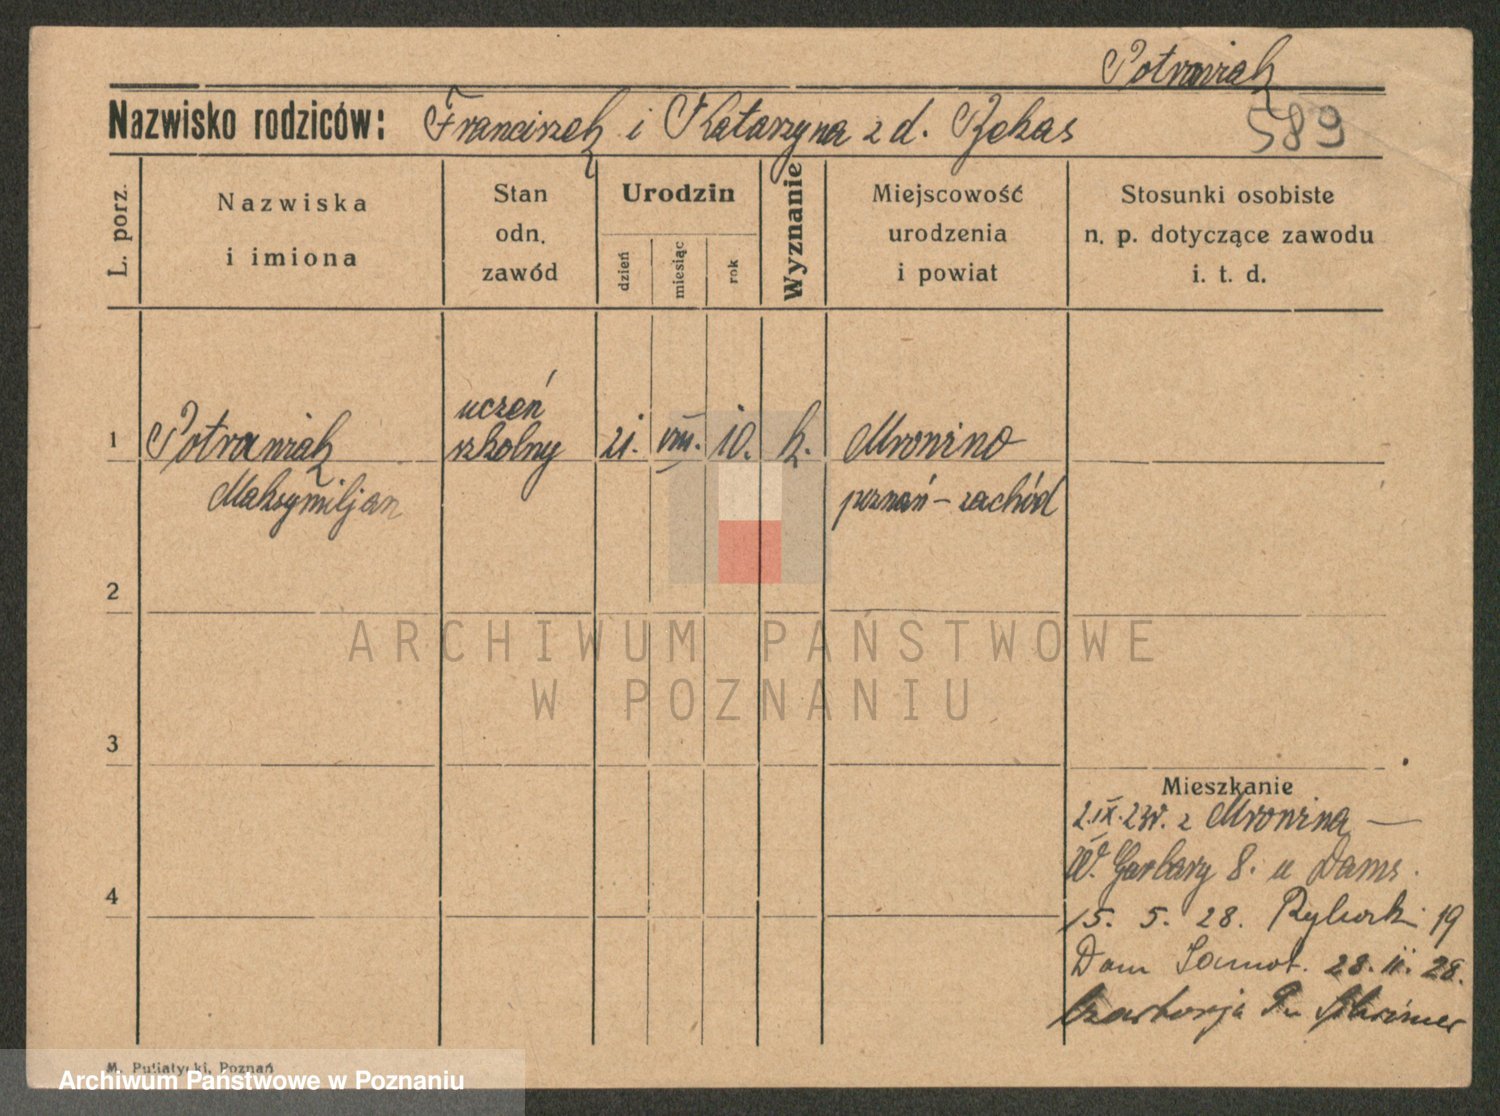 Potrawiak
Nazwisko rodziców: Franciszek i Katarzyna z d. Bekas 589
L. porz.
Nazwiska i imiona
Stan odn. zawód
Urodzin
dzień
miesiąc
rok
Wyznanie
Miejscowość urodzenia i powiat
Stosunki osobiste n. p. dotyczące zawodu i. t. d.
uczeń
1 Potrawiak szkolny 21. VIII. 10. k. Mronino
Maksymiljan poznań – zachód
2
ARCHIWUM PAŃSTWOWE
W POZNANIU
3
Mieszkanie
2.IX.23r. z Mronina —
W. Garbary 8. u Dams.
4
15. 5. 28. 19
Dam 28. II. 28.
M. Putiatycki, Poznań
Archiwum Państwowe w Poznaniu